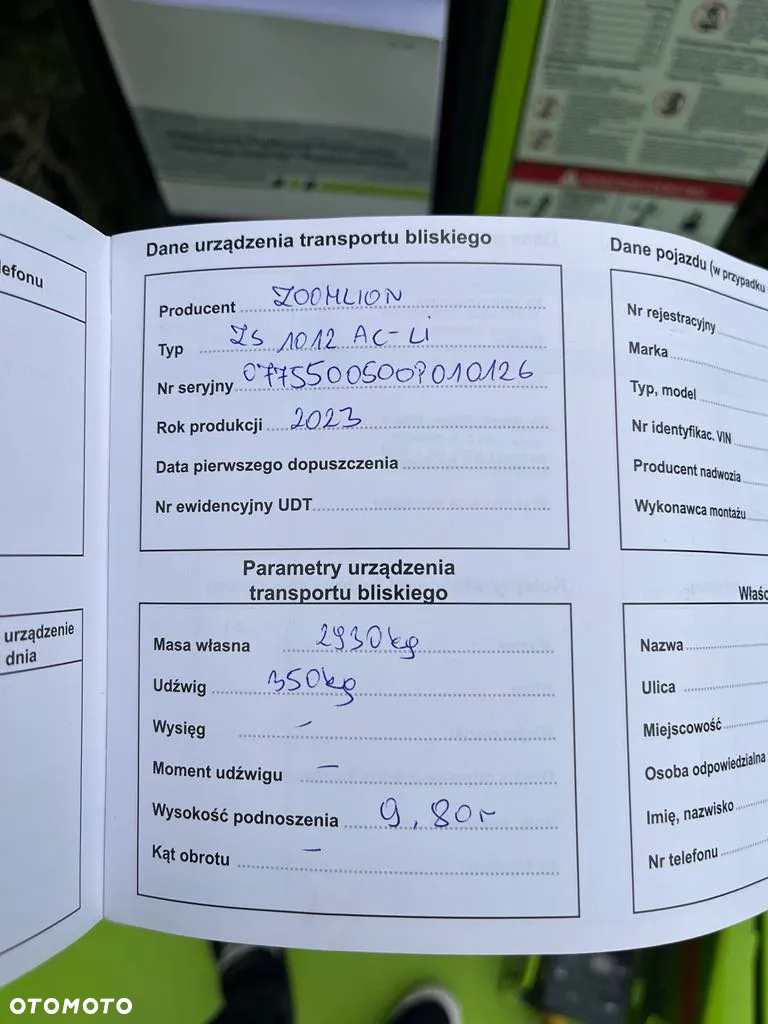 Dane urządzenia transportu bliskiego
Producent ZOOMLION
Typ ZS 1012 AC-Li
Nr seryjny
Rok produkcji 2023
Data pierwszego dopuszczenia
Nr ewidencyjny UDT
Parametry urządzenia
transportu bliskiego
Masa własna 2930kg
Udźwig 350kg
Wysięg –
Moment udźwigu –
Wysokość podnoszenia 9,80m
Kąt obrotu –
efonu
urządzenie
dnia
Dane pojazdu (w przypadku
Nr rejestracyjny
Marka
Typ, model
Nr identyfikac. VIN
Producent nadwozia
Wykonawca montażu
Właśc
Nazwa
Ulica
Miejscowość
Osoba odpowiedzialna
Imię, nazwisko
Nr telefonu
OTOMOTO